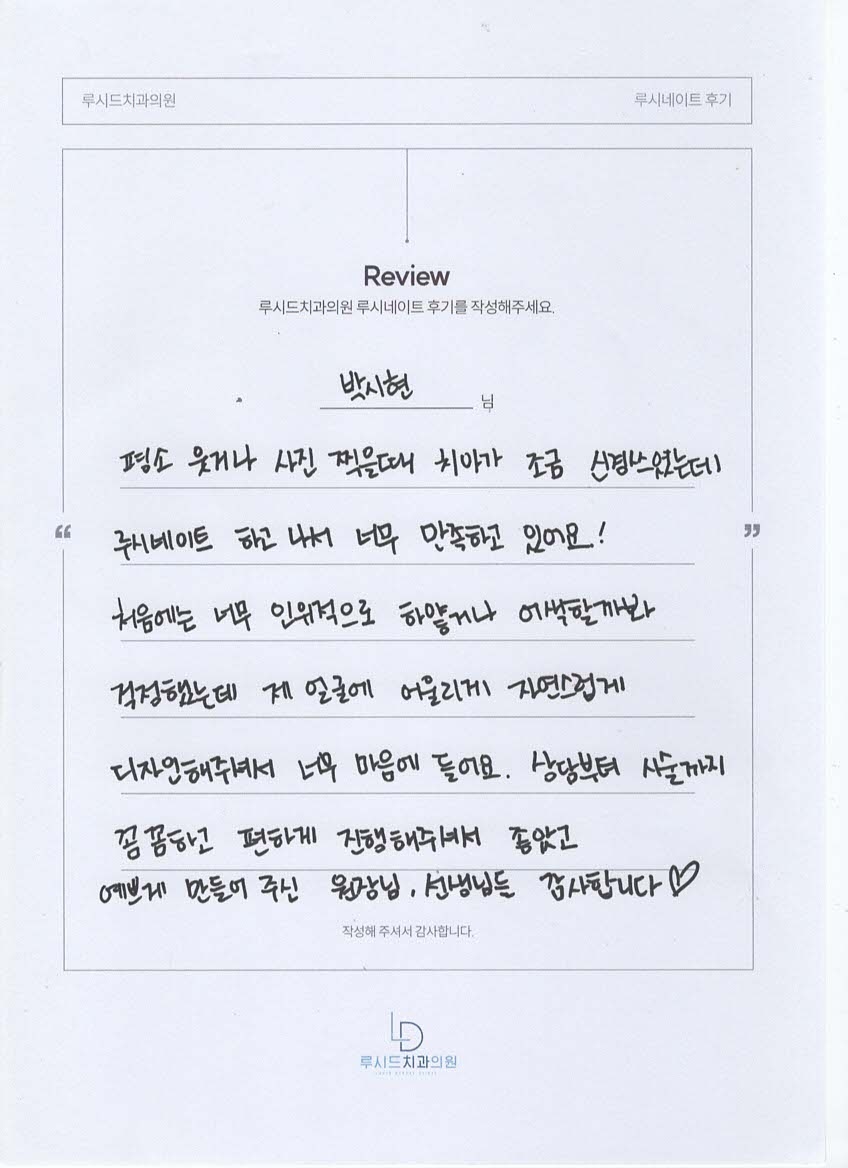 루시드치과의원 루시네이트 후기
Review
루시드치과의원 루시네이트 후기를 작성해주세요.
박시현 님
평소 웃거나 사진 찍을때 치아가 조금 신경쓰였는데
루시네이트 하고 나서 너무 만족하고 있어요!
처음에는 너무 인위적으로 하얗거나 어색할까봐
걱정했는데 제 얼굴에 어울리게 자연스럽게
디자인해주셔서 너무 마음에 들어요. 상담부터 시술까지
꼼꼼하고 편하게 진행해주셔서 좋았고
예쁘게 만들어 주신 원장님, 선생님들 감사합니다♡
작성해 주셔서 감사합니다.
LD
루시드치과의원